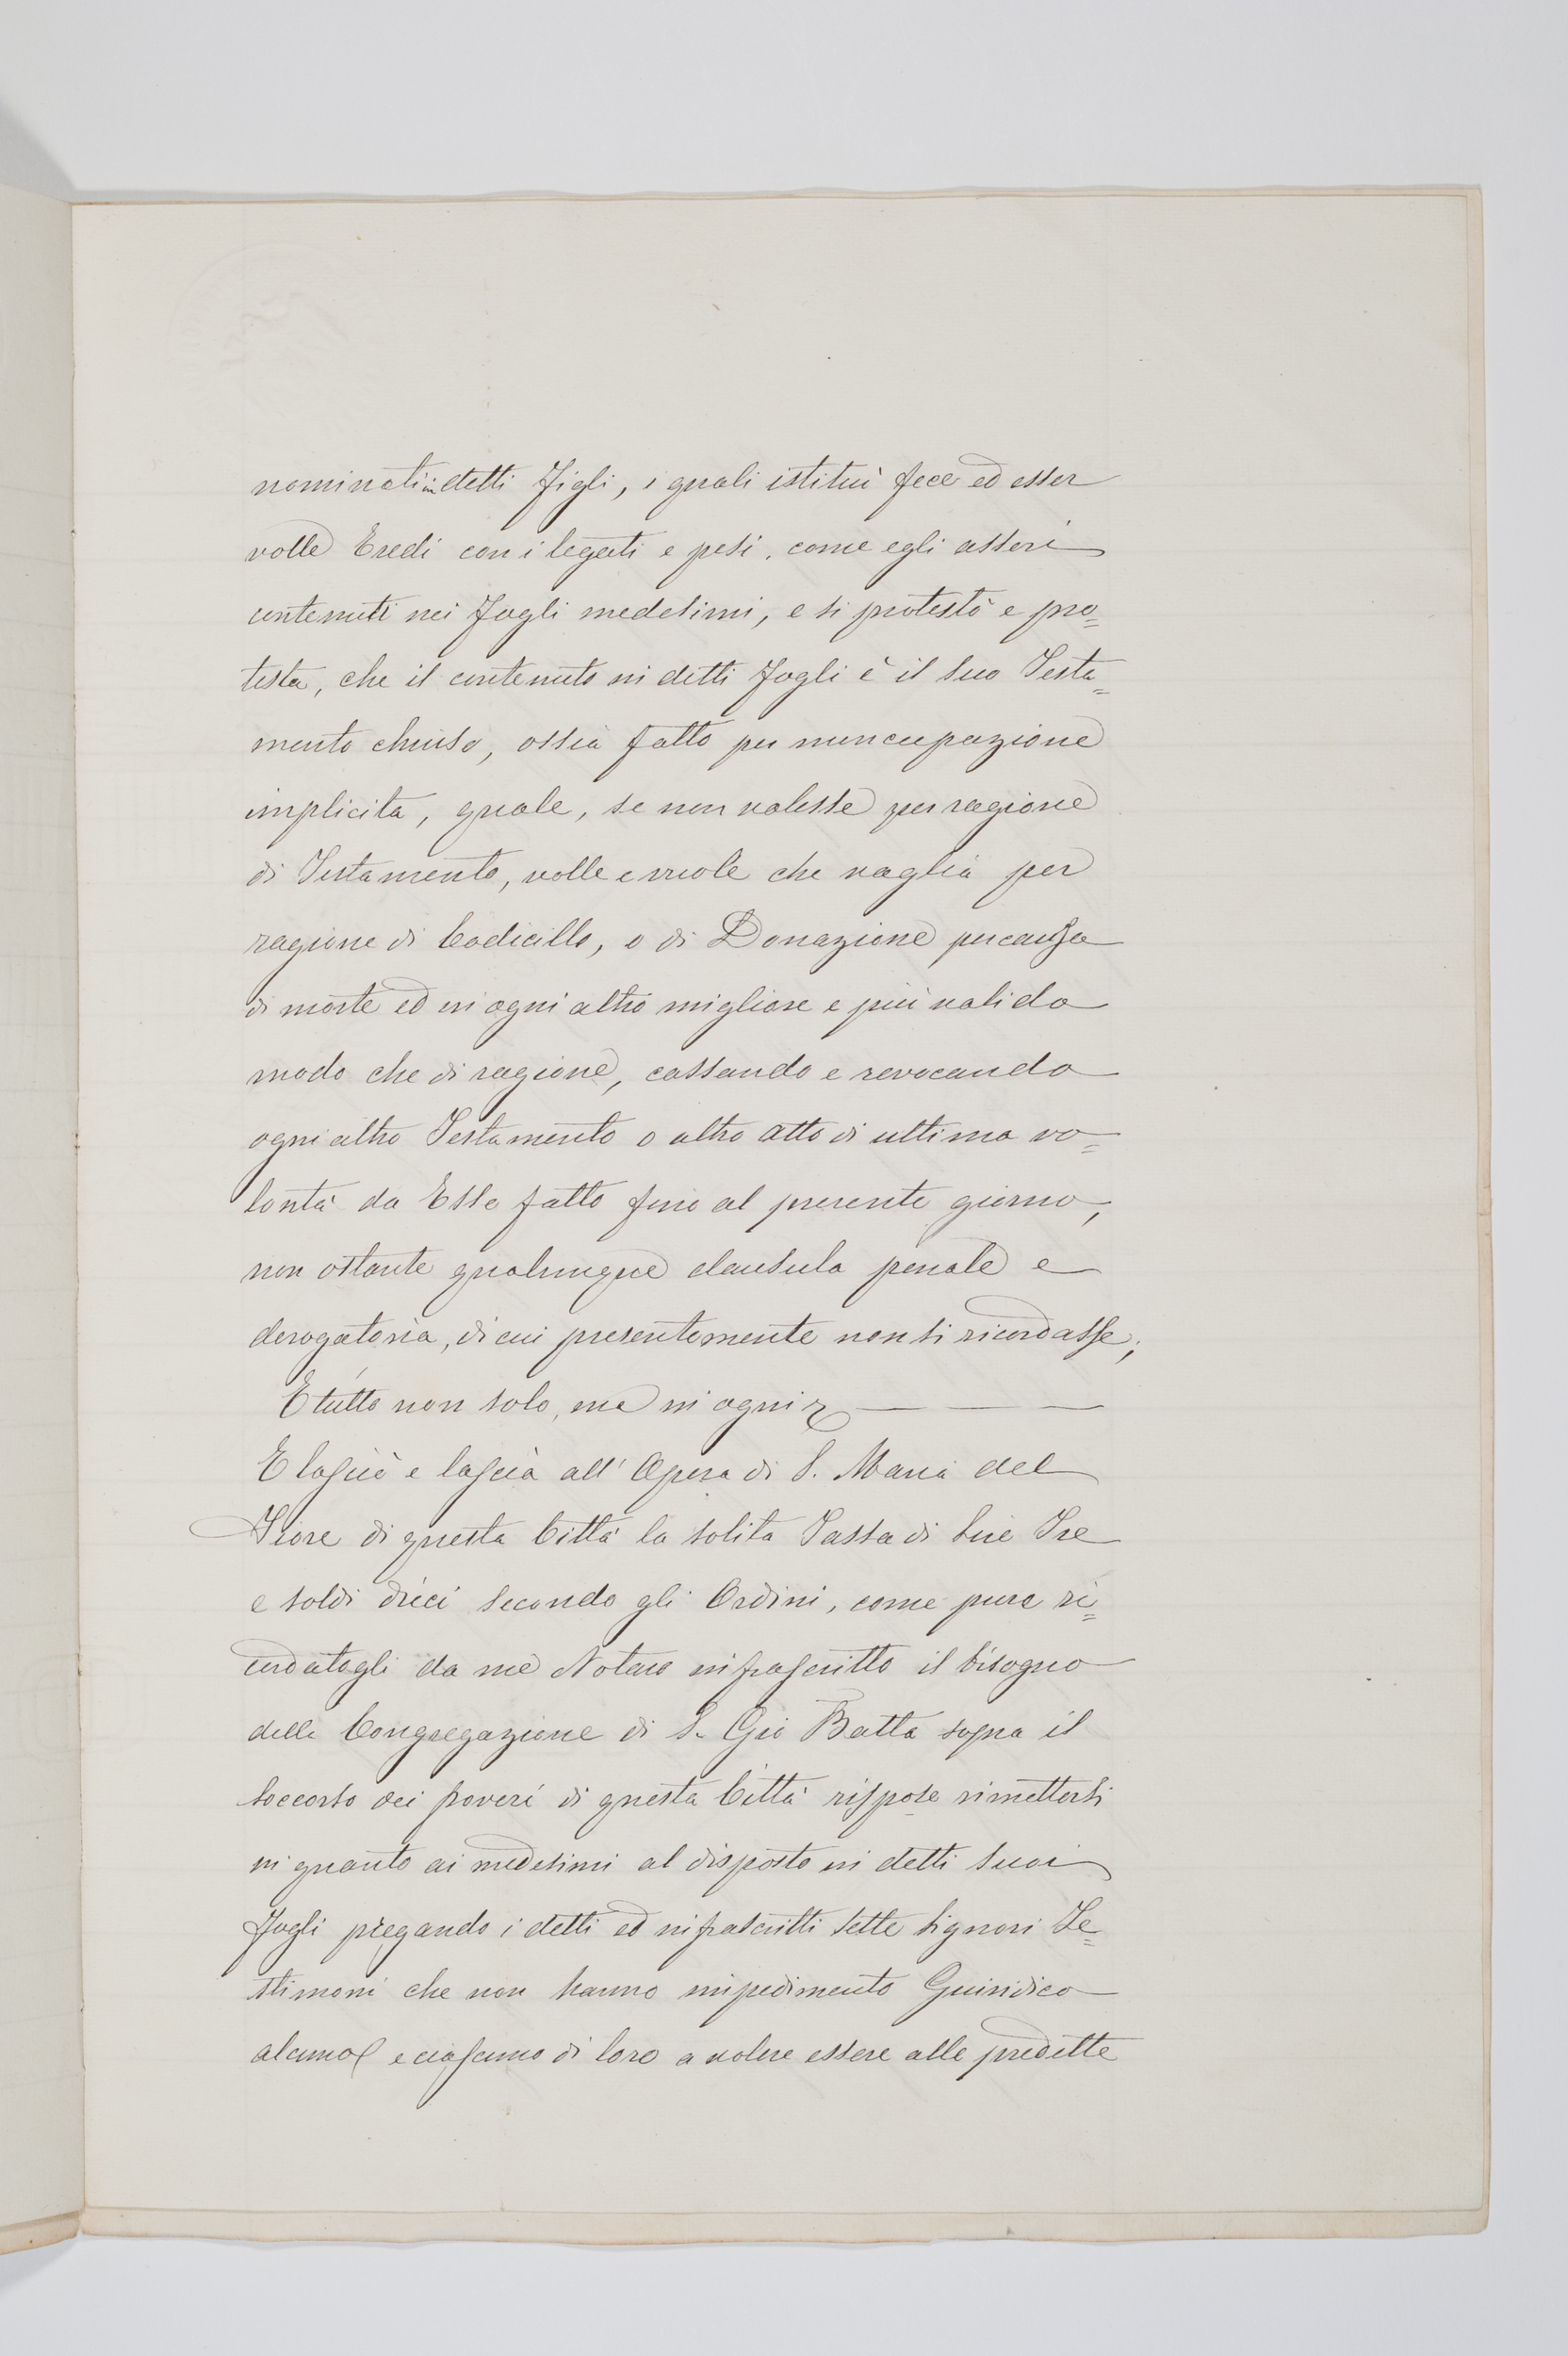 nominati in detti Figli, i quali istituì fece ed esser
volle Eredi con i legati e pesi, come egli asserì
contenuti nei Fogli medesimi, e si protestò e pro=
testa, che il contenuto in detti Fogli è il suo Testa=
mento chiuso, ossia fatto per nuncupazione
implicita, quale, se non valesse per ragione
di Testamento, volle e vuole che vaglia per
ragione di Codicillo, o di Donazione per causa
di morte ed in ogni altro migliore e più valido
modo che di ragione, cassando e revocando
ogni altro Testamento o altro atto di ultima vo=
lontà da Esso fatto fino al presente giorno,
non ostante qualunque clausula penale e
derogatoria, di cui presentemente non si ricordasse;
E tutto non solo, ma in ogni
E lasciò e lascia all' Opera di S. Maria del
Fiore di questa Città la solita Tassa di Lire Tre
e soldi dieci secondo gli Ordini, come pure ri=
cordatogli da me Notaro infrascritto il bisogno
della Congregazione di S. Gio Batta sopra il
soccorso dei poveri di questa Città rispose rimettersi
in quanto ai medesimi al disposto in detti suoi
Fogli pregando i detti ed infrascritti sette Signori Te=
stimoni che non hanno impedimento Giuridico
alcuno e ciascuno di loro a volere essere alle predette